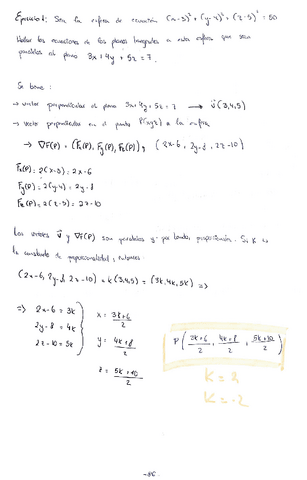 Ejercicio 1: Sea la esfera de ecuación (x-3)² + (y-4)² + (z-5)² = 50
Hallar las ecuaciones de los planos tangentes a esta esfera que sean
paralelos al plano 3x+4y+5z=7.
Se tiene:
→ vector perpendicular al plano 3x+4y+5z=7 → v(3,4,5)
→ vector perpendicular en el punto P(x,y,z) a la esfera
→ ∇F(P) = (Fx(P), Fy(P), Fz(P)) = (2x-6, 2y-8, 2z-10)
Fx(P)=2(x-3)=2x-6
Fy(P)=2(y-4)=2y-8
Fz(P)=2(z-5)=2z-10
Los vectores v y ∇F(P) son paralelos y por tanto, proporcionales. Si K es
la constante de proporcionalidad, entonces:
(2x-6, 2y-8, 2z-10) = k(3,4,5) = (3k,4k,5k) =>
=> 2x-6=3k x = 3k+6/2
2y-8=4k y = 4k+8/2
2z-10=5k z = 5k+10/2
P(3k+6/2, 4k+8/2, 5k+10/2)
K = 2
K = -2